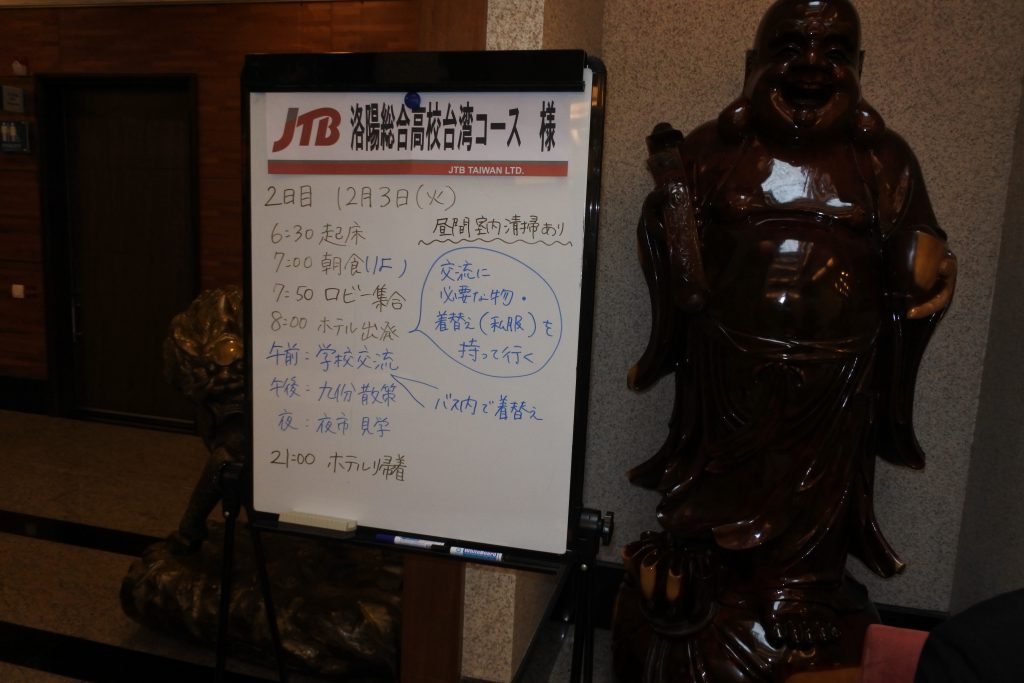 JTB 洛陽総合高校台湾コース 様
JTB TAIWAN LTD.
2日目 12月3日(火)
昼間室内清掃あり
6:30 起床
7:00 朝食(1F)
7:50 ロビー集合
8:00 ホテル出発
交流に
必要な物・
着替え(私服)を
持って行く
午前:学校交流
午後:九份散策
バス内で着替え
夜:夜市見学
21:00 ホテル帰着
WhiteBoard